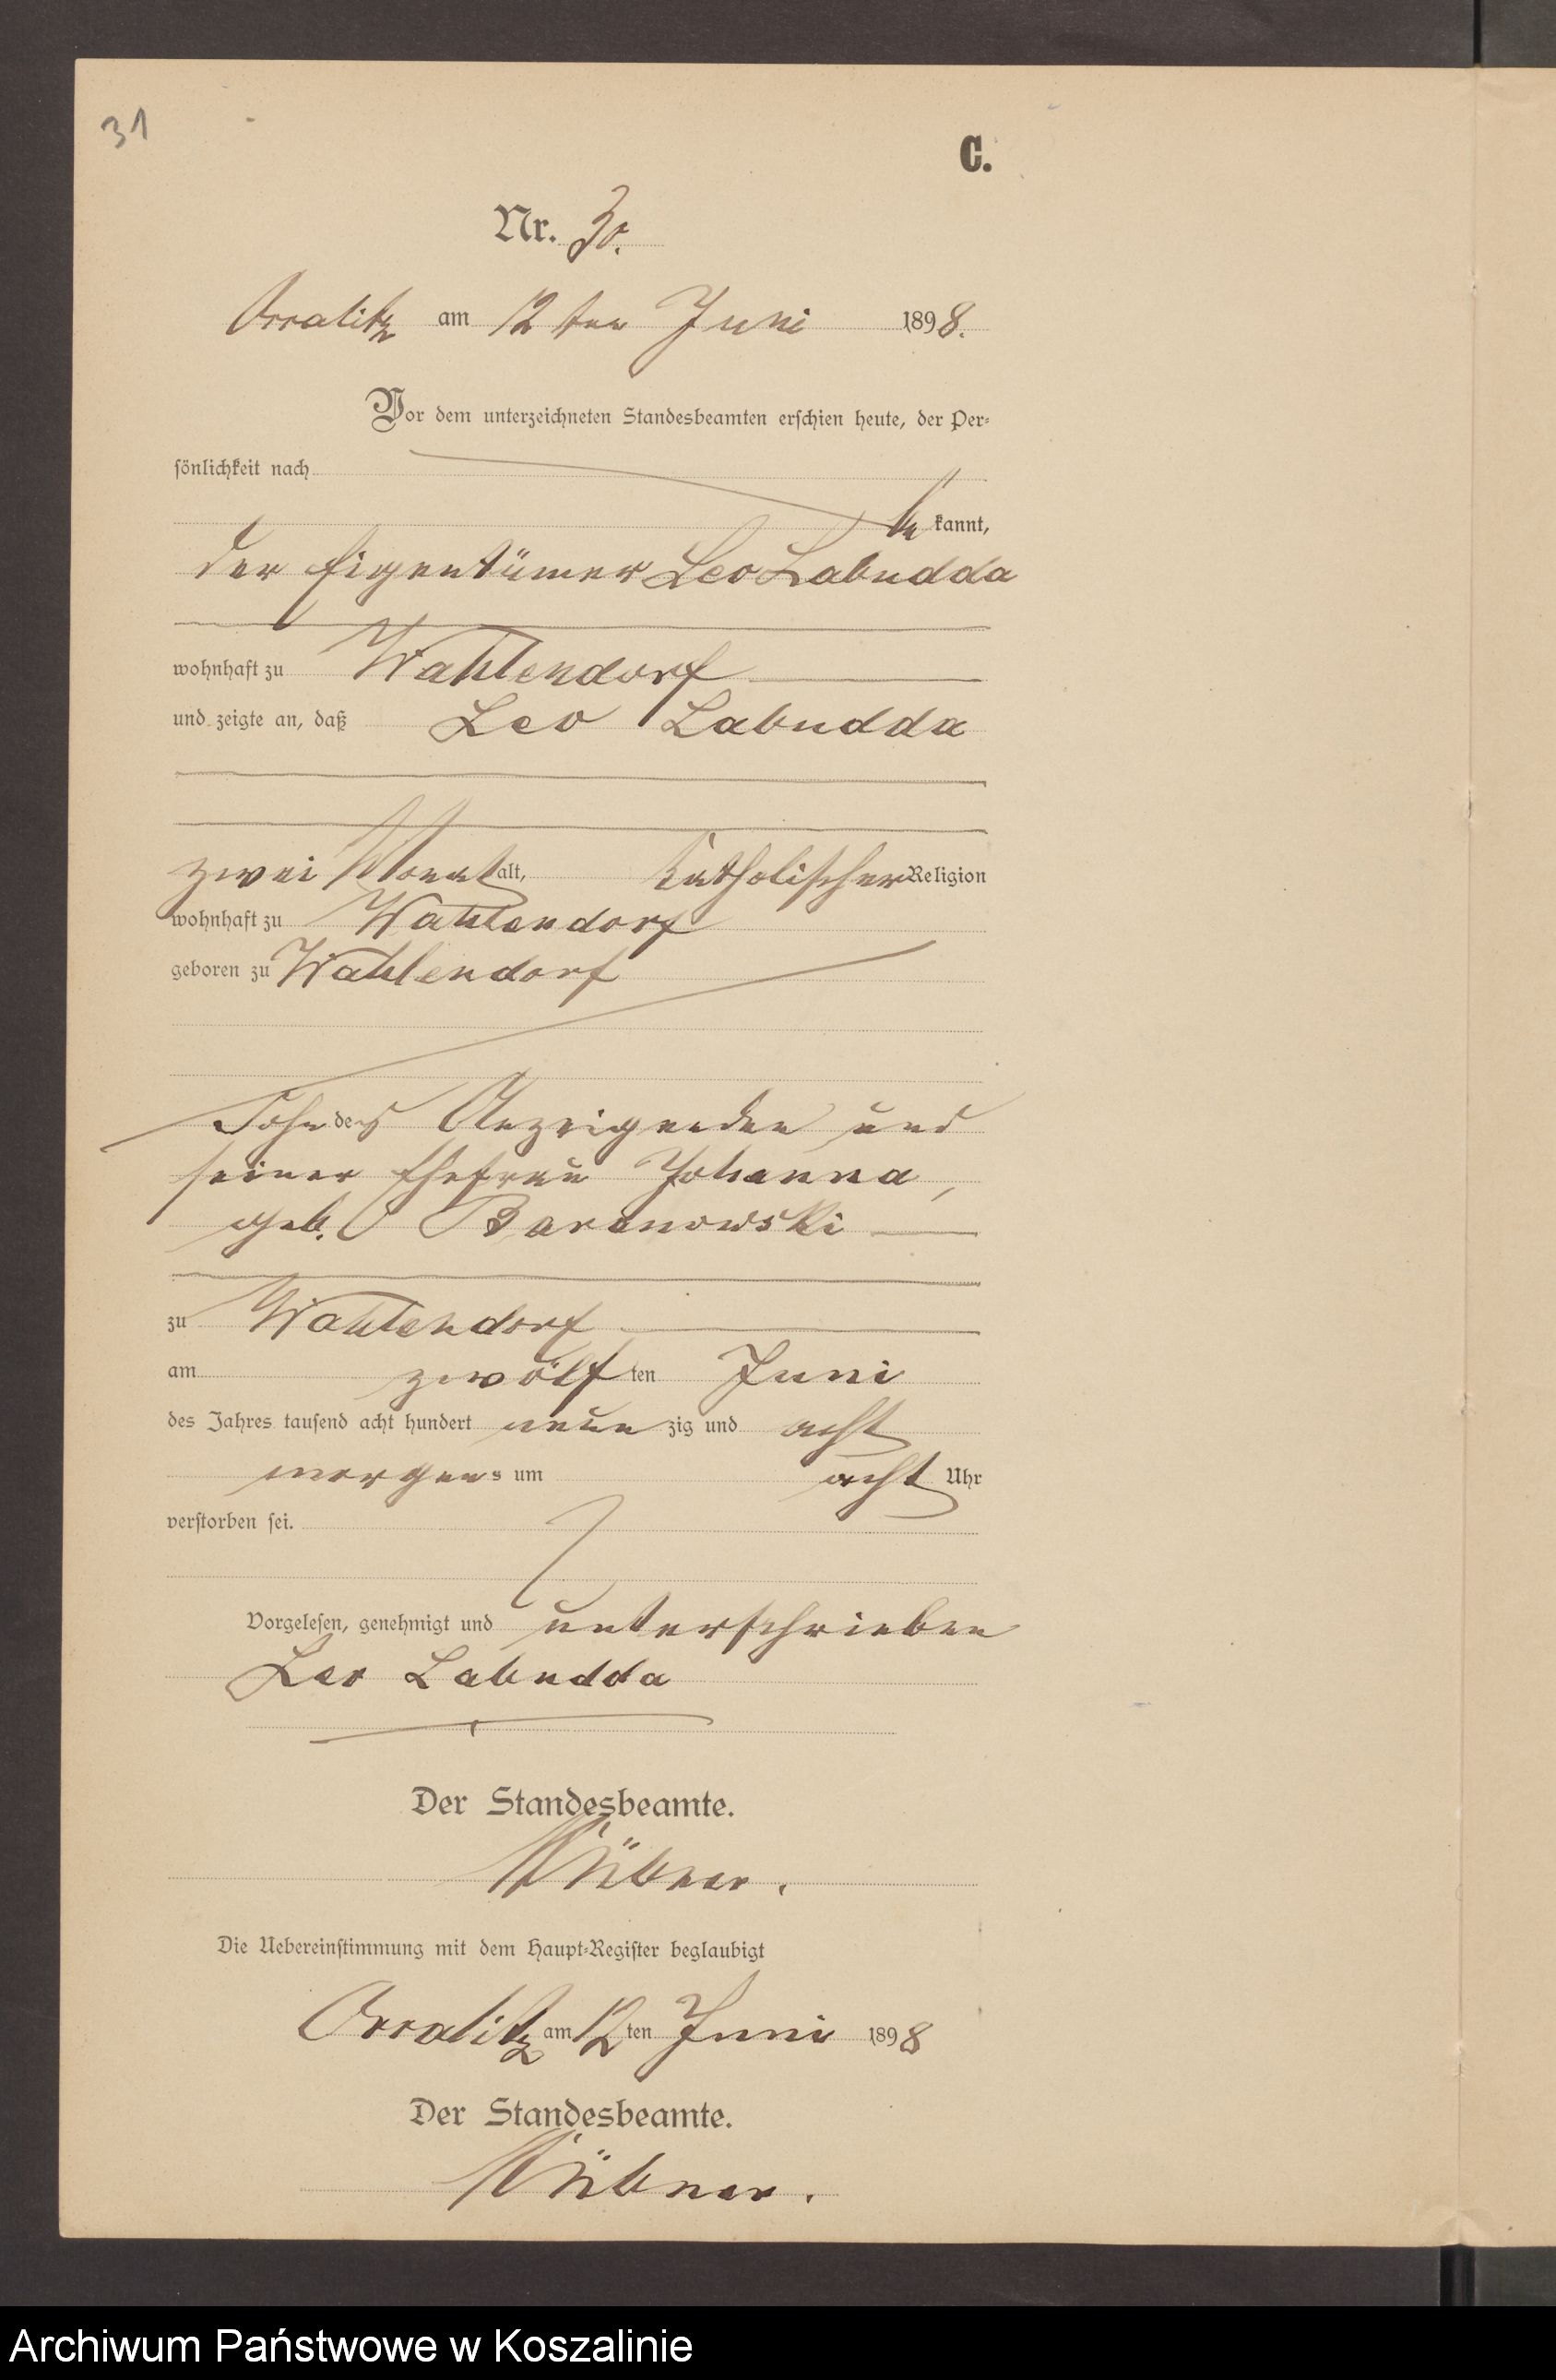 31
C.
Nr. 30.
Orralitz am 12 ten Juni 1898.
Vor dem unterzeichneten Standesbeamten erschien heute, der Per-
sönlichkeit nach
be kannt,
der Eigentümer Leo Labudda
wohnhaft zu Wahlendorf
und zeigte an, daß Leo Labudda
zwei Monat alt, katholischer Religion
wohnhaft zu Wahlendorf
geboren zu Wahlendorf
Sohn des Anzeigenden und
seiner Ehefrau Johanna,
geb. Baranowski
zu Wahlendorf
am zwölften Juni
des Jahres tausend acht hundert neunzig und acht
morgens um acht Uhr
verstorben sei.
Vorgelesen, genehmigt und unterschrieben
Leo Labudda
Der Standesbeamte.
Die Uebereinstimmung mit dem Haupt-Register beglaubigt
Orralitz am 12ten Juni 1898
Der Standesbeamte.
Archiwum Państwowe w Koszalinie